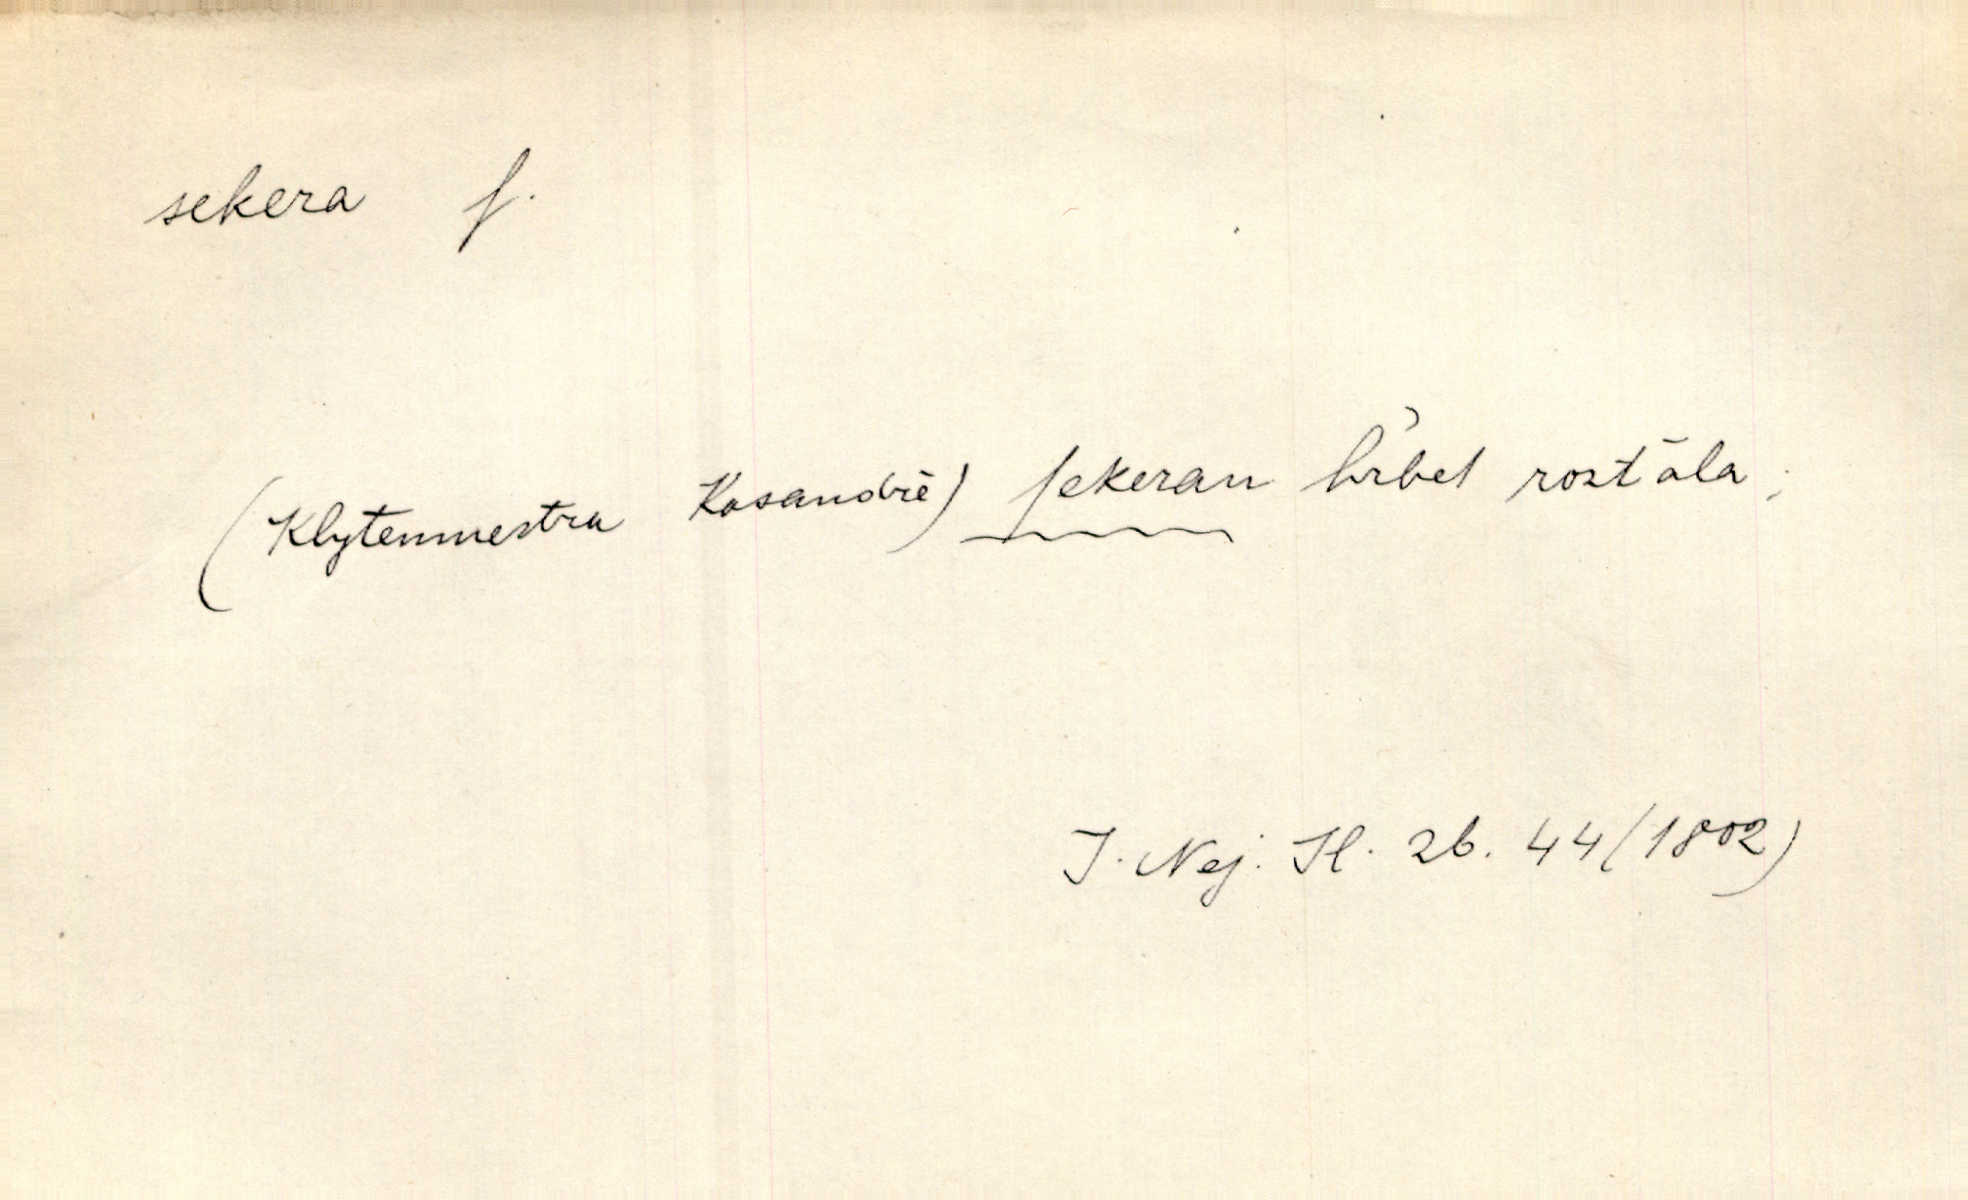 sekera f.
(Klytemnestra Kasandře) sekerau hřbet rozťala;
J. Nej. Hl. 2b. 44 (1802)